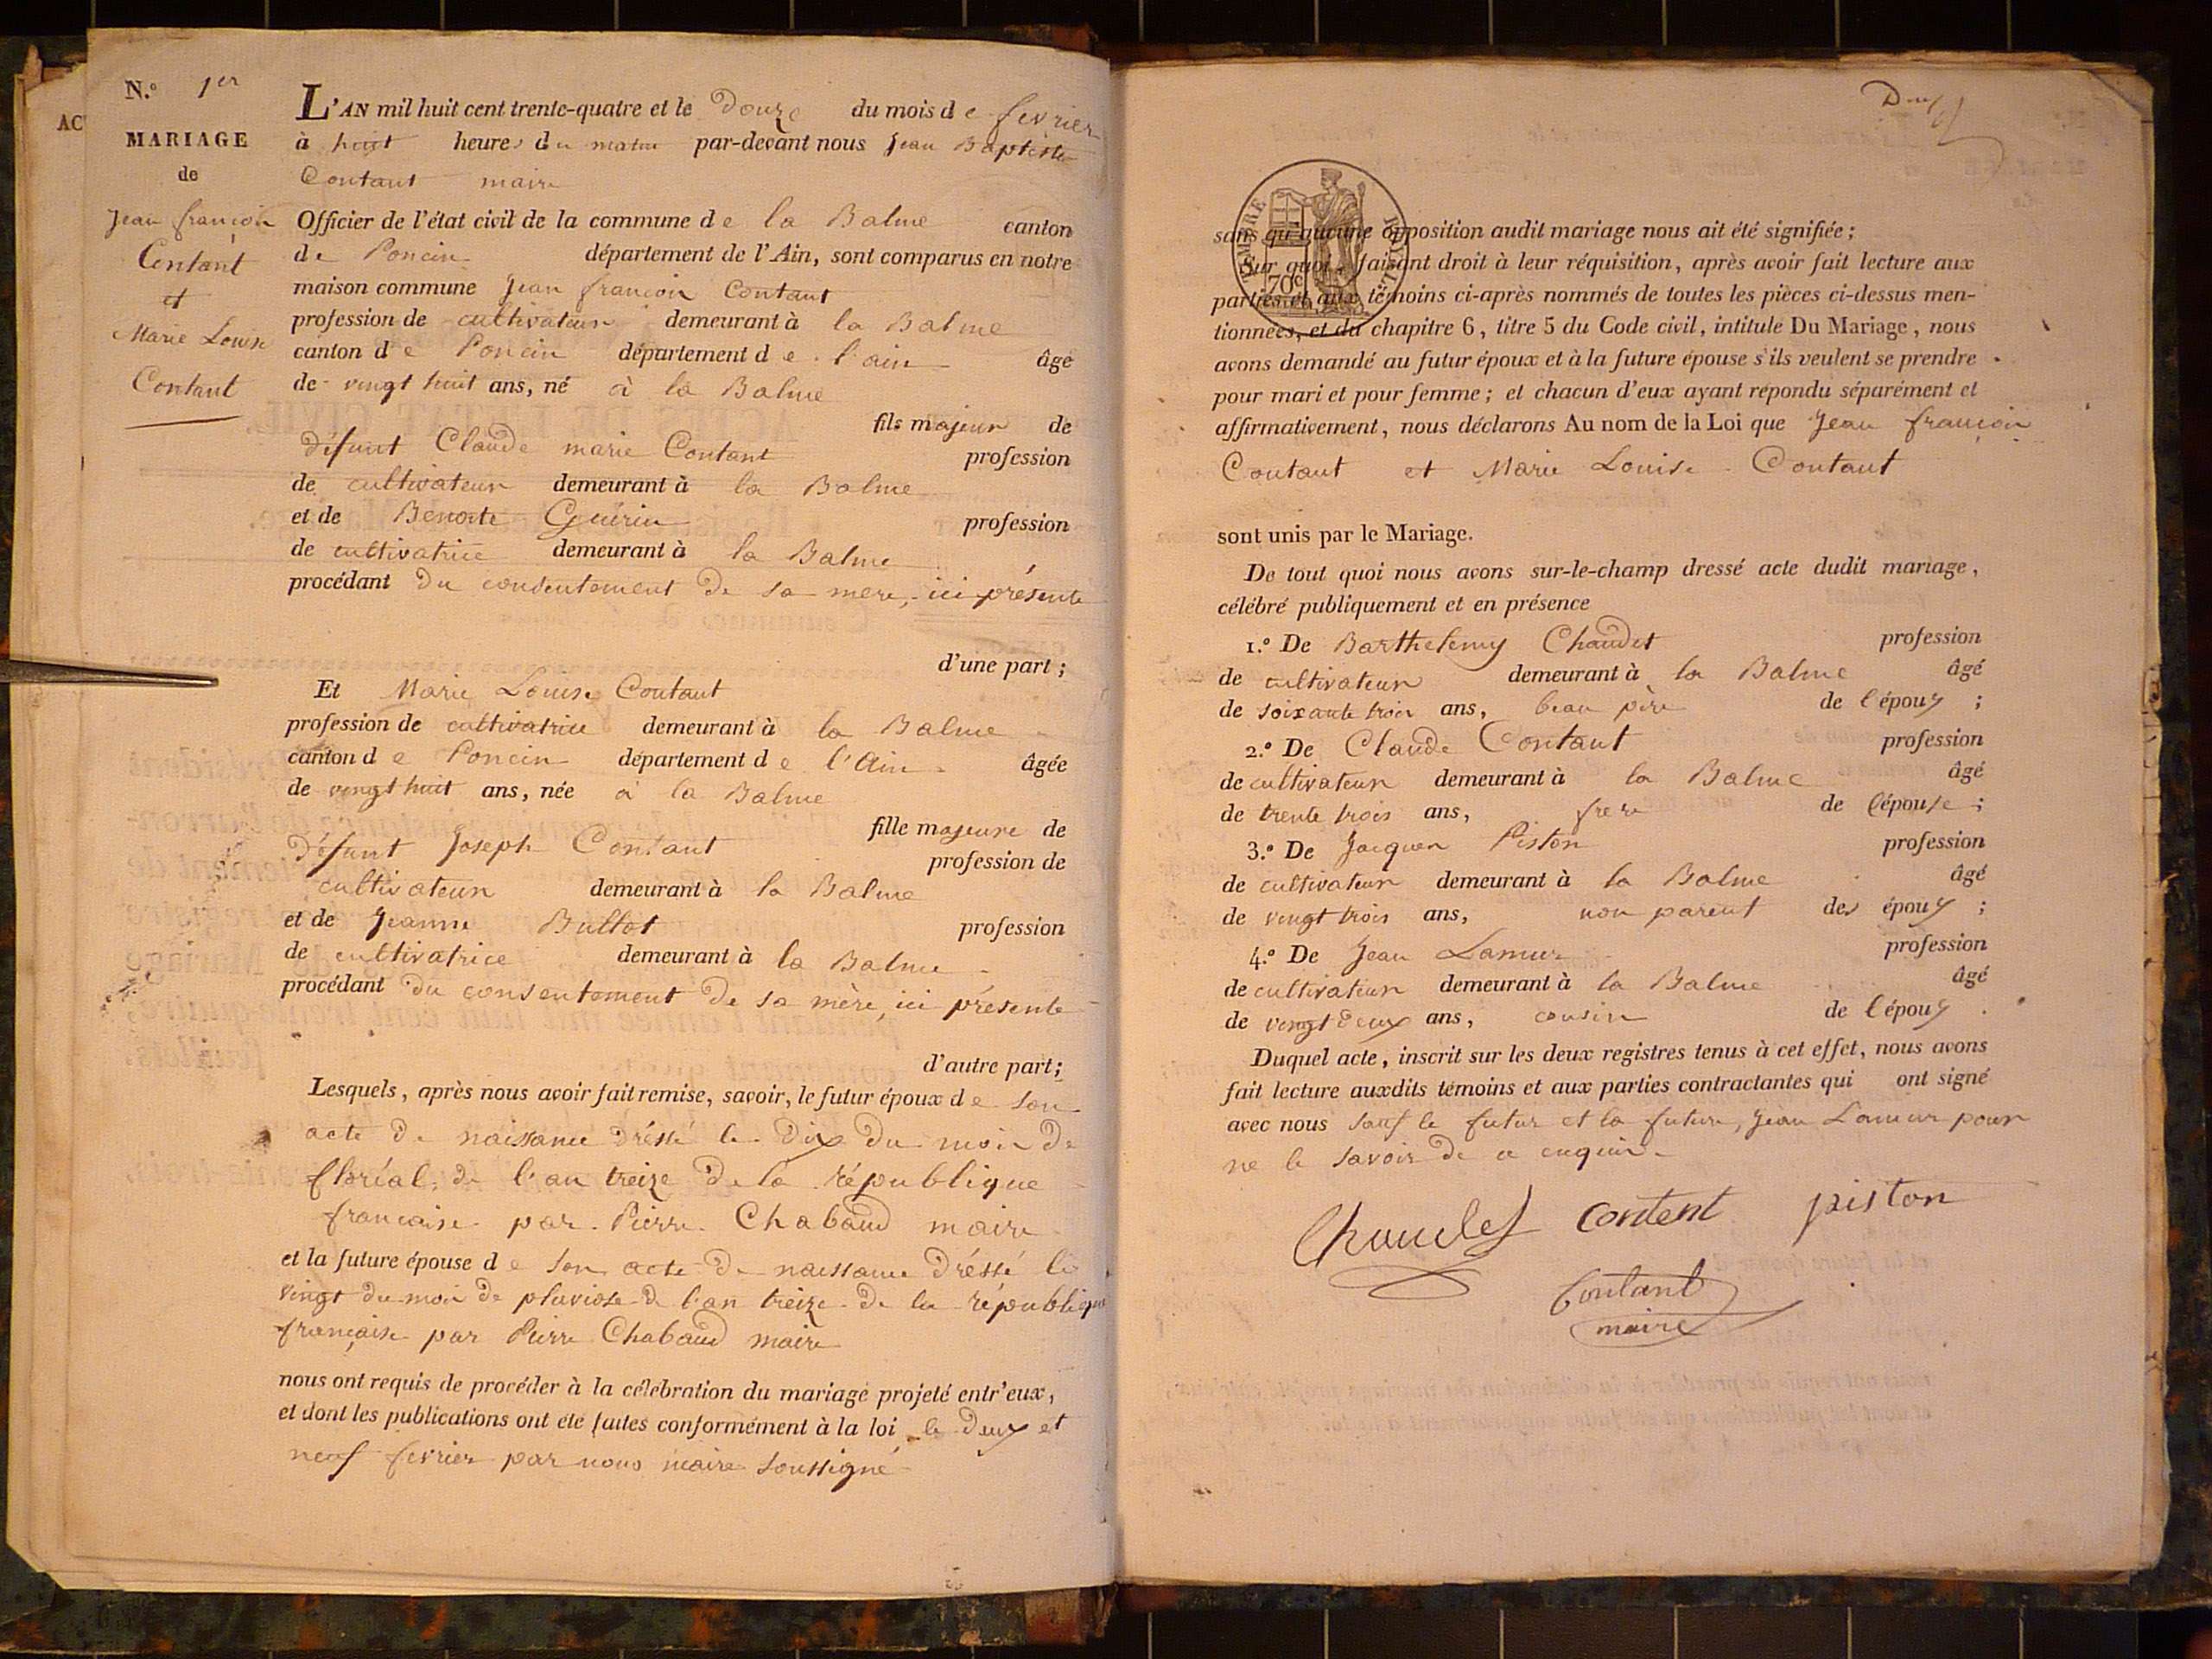 N.º 1er
AC
MARIAGE
de
Jean françois
Contant
et
Marie Louise
Contant
L'AN mil huit cent trente-quatre et le Douze du mois de fevrier
à huit heures du matin par-devant nous Jean Baptiste
Contant maire
Officier de l'état civil de la commune de la Balme canton
de Poncin département de l'Ain, sont comparus en notre
maison commune Jean françois Contant
profession de cultivateur demeurant à la Balme
canton de Poncin département de l'ain âgé
de vingt huit ans, né à la Balme
fils majeur de
Défunt Claude marie Contant profession
de cultivateur demeurant à la Balme
et de Benoite Guérin profession
de cultivatrice demeurant à la Balme
procédant Du consentement De sa mere, ici présente
d'une part ;
Et Marie Louise Contant
profession de cultivatrice demeurant à la Balme
canton de Poncin département de l'Ain âgée
de vingt huit ans, née à la Balme
fille majeure de
Défunt Joseph Contant profession de
cultivateur demeurant à la Balme
et de Jeanne Bullot profession
de cultivatrice demeurant à la Balme
procédant Du consentement De sa mère, ici présente
d'autre part ;
Lesquels, après nous avoir fait remise, savoir, le futur époux de son
acte De naissance Dréssé le Dix Du mois De
floréal de l'an treize De la république
francaise par Pierre Chabaud maire
et la future épouse de son acte De naissance Dréssé le
vingt du mois De pluviose De l'an treize De la république
française par Pierre Chabaud maire
nous ont requis de procéder à la célébration du mariage projeté entr'eux,
et dont les publications ont été faites conformément à la loi le Deux et
neuf fevrier par nous maire soussigné
TIMBRE ROYAL
70c
sans qu'aucune opposition audit mariage nous ait été signifiée ;
Sur quoi, faisant droit à leur réquisition, après avoir fait lecture aux
parties et aux témoins ci-après nommés de toutes les pièces ci-dessus men-
tionnées, et du chapitre 6, titre 5 du Code civil, intitulé Du Mariage, nous
avons demandé au futur époux et à la future épouse s'ils veulent se prendre
pour mari et pour femme ; et chacun d'eux ayant répondu séparément et
affirmativement, nous déclarons Au nom de la Loi que Jean françois
Contant et Marie Louise Contant
sont unis par le Mariage.
De tout quoi nous avons sur-le-champ dressé acte dudit mariage,
célébré publiquement et en présence
1.º De Barthelemy Chaudet profession
de cultivateur demeurant à la Balme âgé
de soixante trois ans, beau père de l'époux ;
2.º De Claude Contant profession
de cultivateur demeurant à la Balme âgé
de trente trois ans, frere de l'épouse ;
3.º De Jacques Piston profession
de cultivateur demeurant à la Balme âgé
de vingt trois ans, non parent des époux ;
4.º De Jean Lamur profession
de cultivateur demeurant à la Balme âgé
de vingt deux ans, cousin de l'époux .
Duquel acte, inscrit sur les deux registres tenus à cet effet, nous avons
fait lecture auxdits témoins et aux parties contractantes qui ont signé
avec nous sauf le futur et la future, Jean Lamur pour
ne le savoir De ce enquis
Chaudet content piston
Contant
maire